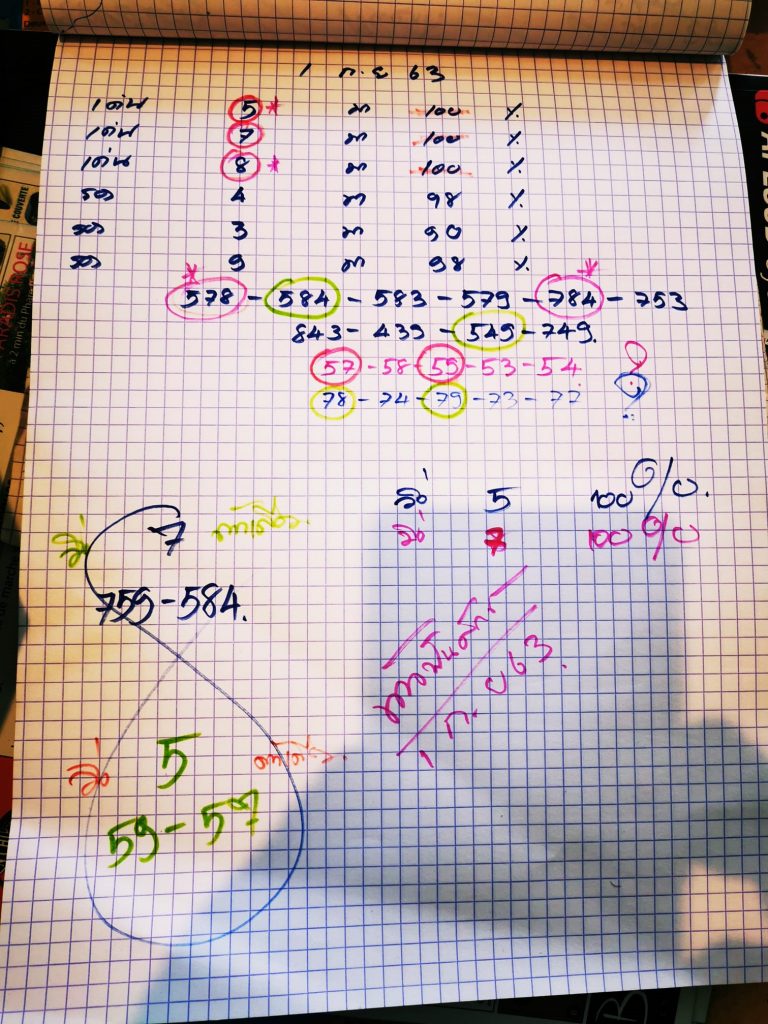 1 ก.ย 63
เด่น 5 * มา 100 %
เด่น 7 มา 100 %
เด่น 8 * มา 100 %
รอง 4 มา 98 %
รอง 3 มา 90 %
รอง 9 มา 98 %
578 - 584 - 583 - 579 - 784 - 753
843 - 439 - 549 - 749.
57 - 58 - 59 - 53 - 54
78 - 74 - 79 - 73 - 77
วิ่ง 5 100%.
วิ่ง 100%
วิ่ง 7 ตัวเดียว.
759 - 584.
1 ก.ย 63.
วิ่ง 5 ตัวเดียว.
59 - 57
COUVERTE
à 2 min du